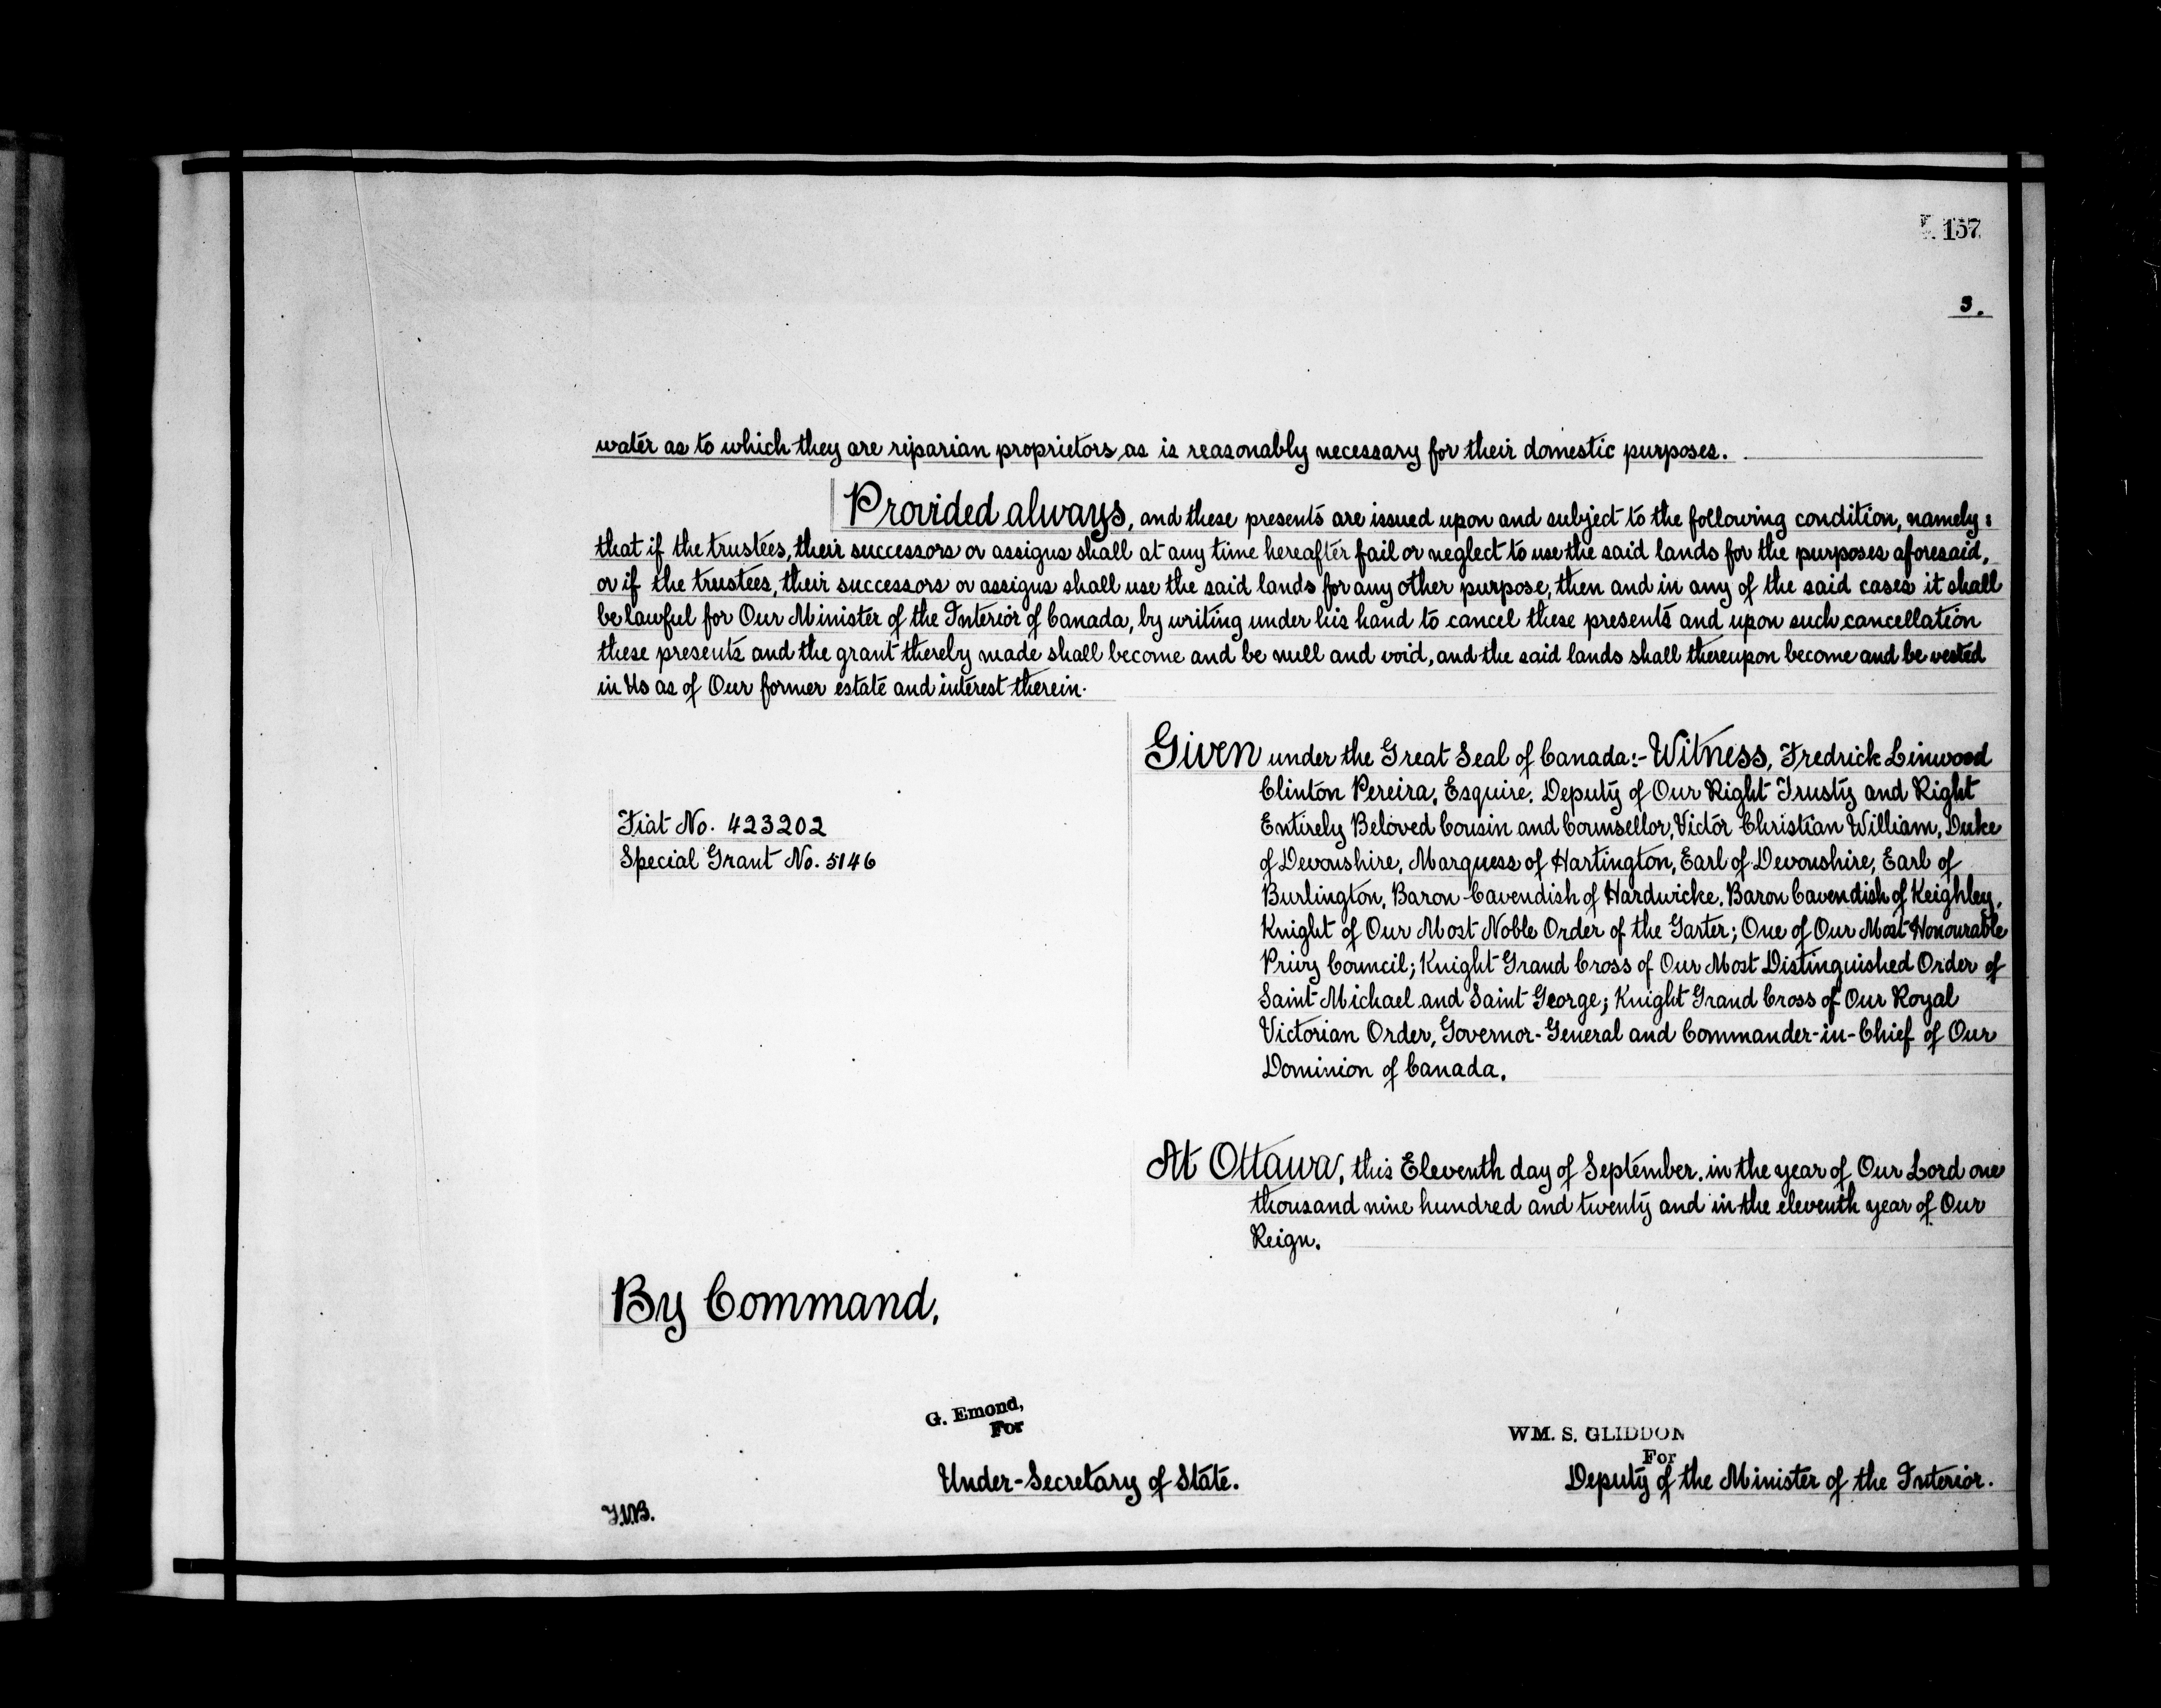 157
3.
water as to which they are riparian proprietors, as is reasonably necessary for their domestic purposes.
Provided always, and these presents are issued upon and subject to the following condition, namely:
that if the trustees, their successors or assigns shall at any time hereafter fail or neglect to use the said lands for the purposes aforesaid,
or if the trustees, their successors or assigns shall use the said lands for any other purpose, then and in any of the said cases it shall
be lawful for Our Minister of the Interior of Canada, by writing under his hand to cancel these presents and upon such cancellation
these presents and the grant thereby made shall become and be null and void, and the said lands shall thereupon become and be vested
in Us as of Our former estate and interest therein.
Given under the Great Seal of Canada:- Witness, Fredrick Linwood
Clinton Pereira, Esquire, Deputy of Our Right Trusty and Right
Entirely Beloved Cousin and Counsellor, Victor Christian William, Duke
of Devonshire, Marquess of Hartington, Earl of Devonshire, Earl of
Burlington, Baron Cavendish of Hardwicke, Baron Cavendish of Keighley,
Knight of Our Most Noble Order of the Garter; One of Our Most Honourable
Privy Council; Knight Grand Cross of Our Most Distinguished Order of
Saint Michael and Saint George; Knight Grand Cross of Our Royal
Victorian Order, Governor-General and Commander-in-Chief of Our
Dominion of Canada.
Fiat No. 423202
Special Grant No. 5146
At Ottawa, this Eleventh day of September, in the year of Our Lord one
thousand nine hundred and twenty and in the eleventh year of Our
Reign.
By Command,
G. Emond,
For
Under-Secretary of State.
WM. S. GLIDDON
For
Deputy of the Minister of the Interior.